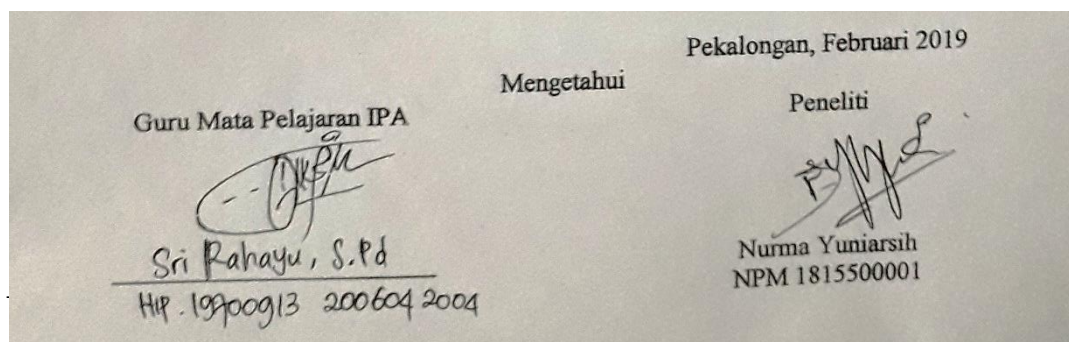 Pekalongan, Februari 2019
Mengetahui
Guru Mata Pelajaran IPA
Peneliti
Sri Rahayu, S.Pd
NIP. 19700913 200604 2004
Nurma Yuniarsih
NPM 1815500001